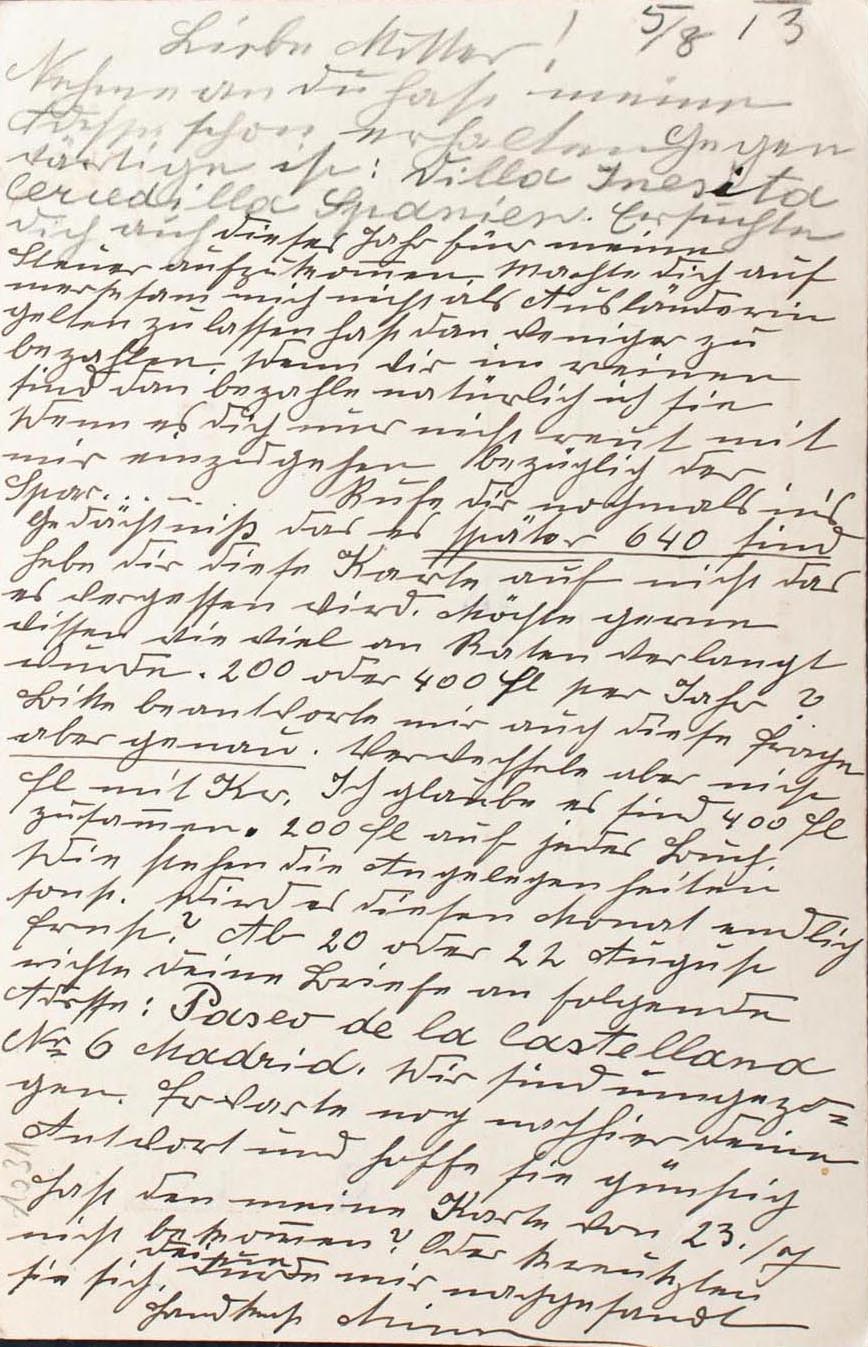 Liebe Mutter! 5/8 13
Nehme an du hast meine
Adresse schon erhalten Gegen
wärtige ist: Villa Inesita
Cercedilla Spanien. Ersuchte
dich auch dieses Jahr für meine
Steuer aufzukommen. Machte dich auf
merksam mich nicht als Ausländerin
gelten zu lassen hast dan weniger zu
bezahlen. Wenn wir im reinen
sind dan bezahle natürlich ich sie
Wenn es dich nur nicht reut mit
mir einzugehen bezüglich der
Spar... Rufe dir nochmals in's
Gedächtniß das es später 640 sind
hebe dir diese Karte auf nicht das
es vergessen wird. Möchte gerne
wissen wie viel an Raten verlangt
wurde. 200 oder 400 fl per Jahr?
Bitte beantworte mir auch diese frage
aber genau. Verwechsele aber nicht
fl mit Kr. Ich glaube es sind 400 fl
zusammen. 200 fl auf jedes Buch.
Wie stehen die Angelegenheiten
sonst. Wird es diesen Monat endlich
Ernst? Ab 20 oder 22 August
richte deine Briefe an folgende
Adresse: Paseo de la Castellana
Nr 6 Madrid. Wir sind umgezo=
gen. Erwarte noch nach hier deine
Antwort und hoffe sie günstig
Hast den meine Karte von 23./7
nicht bekommen? Oder kreutzten
sie sich. deine wurde mir nachgesandt
Handkuß Minna
1031